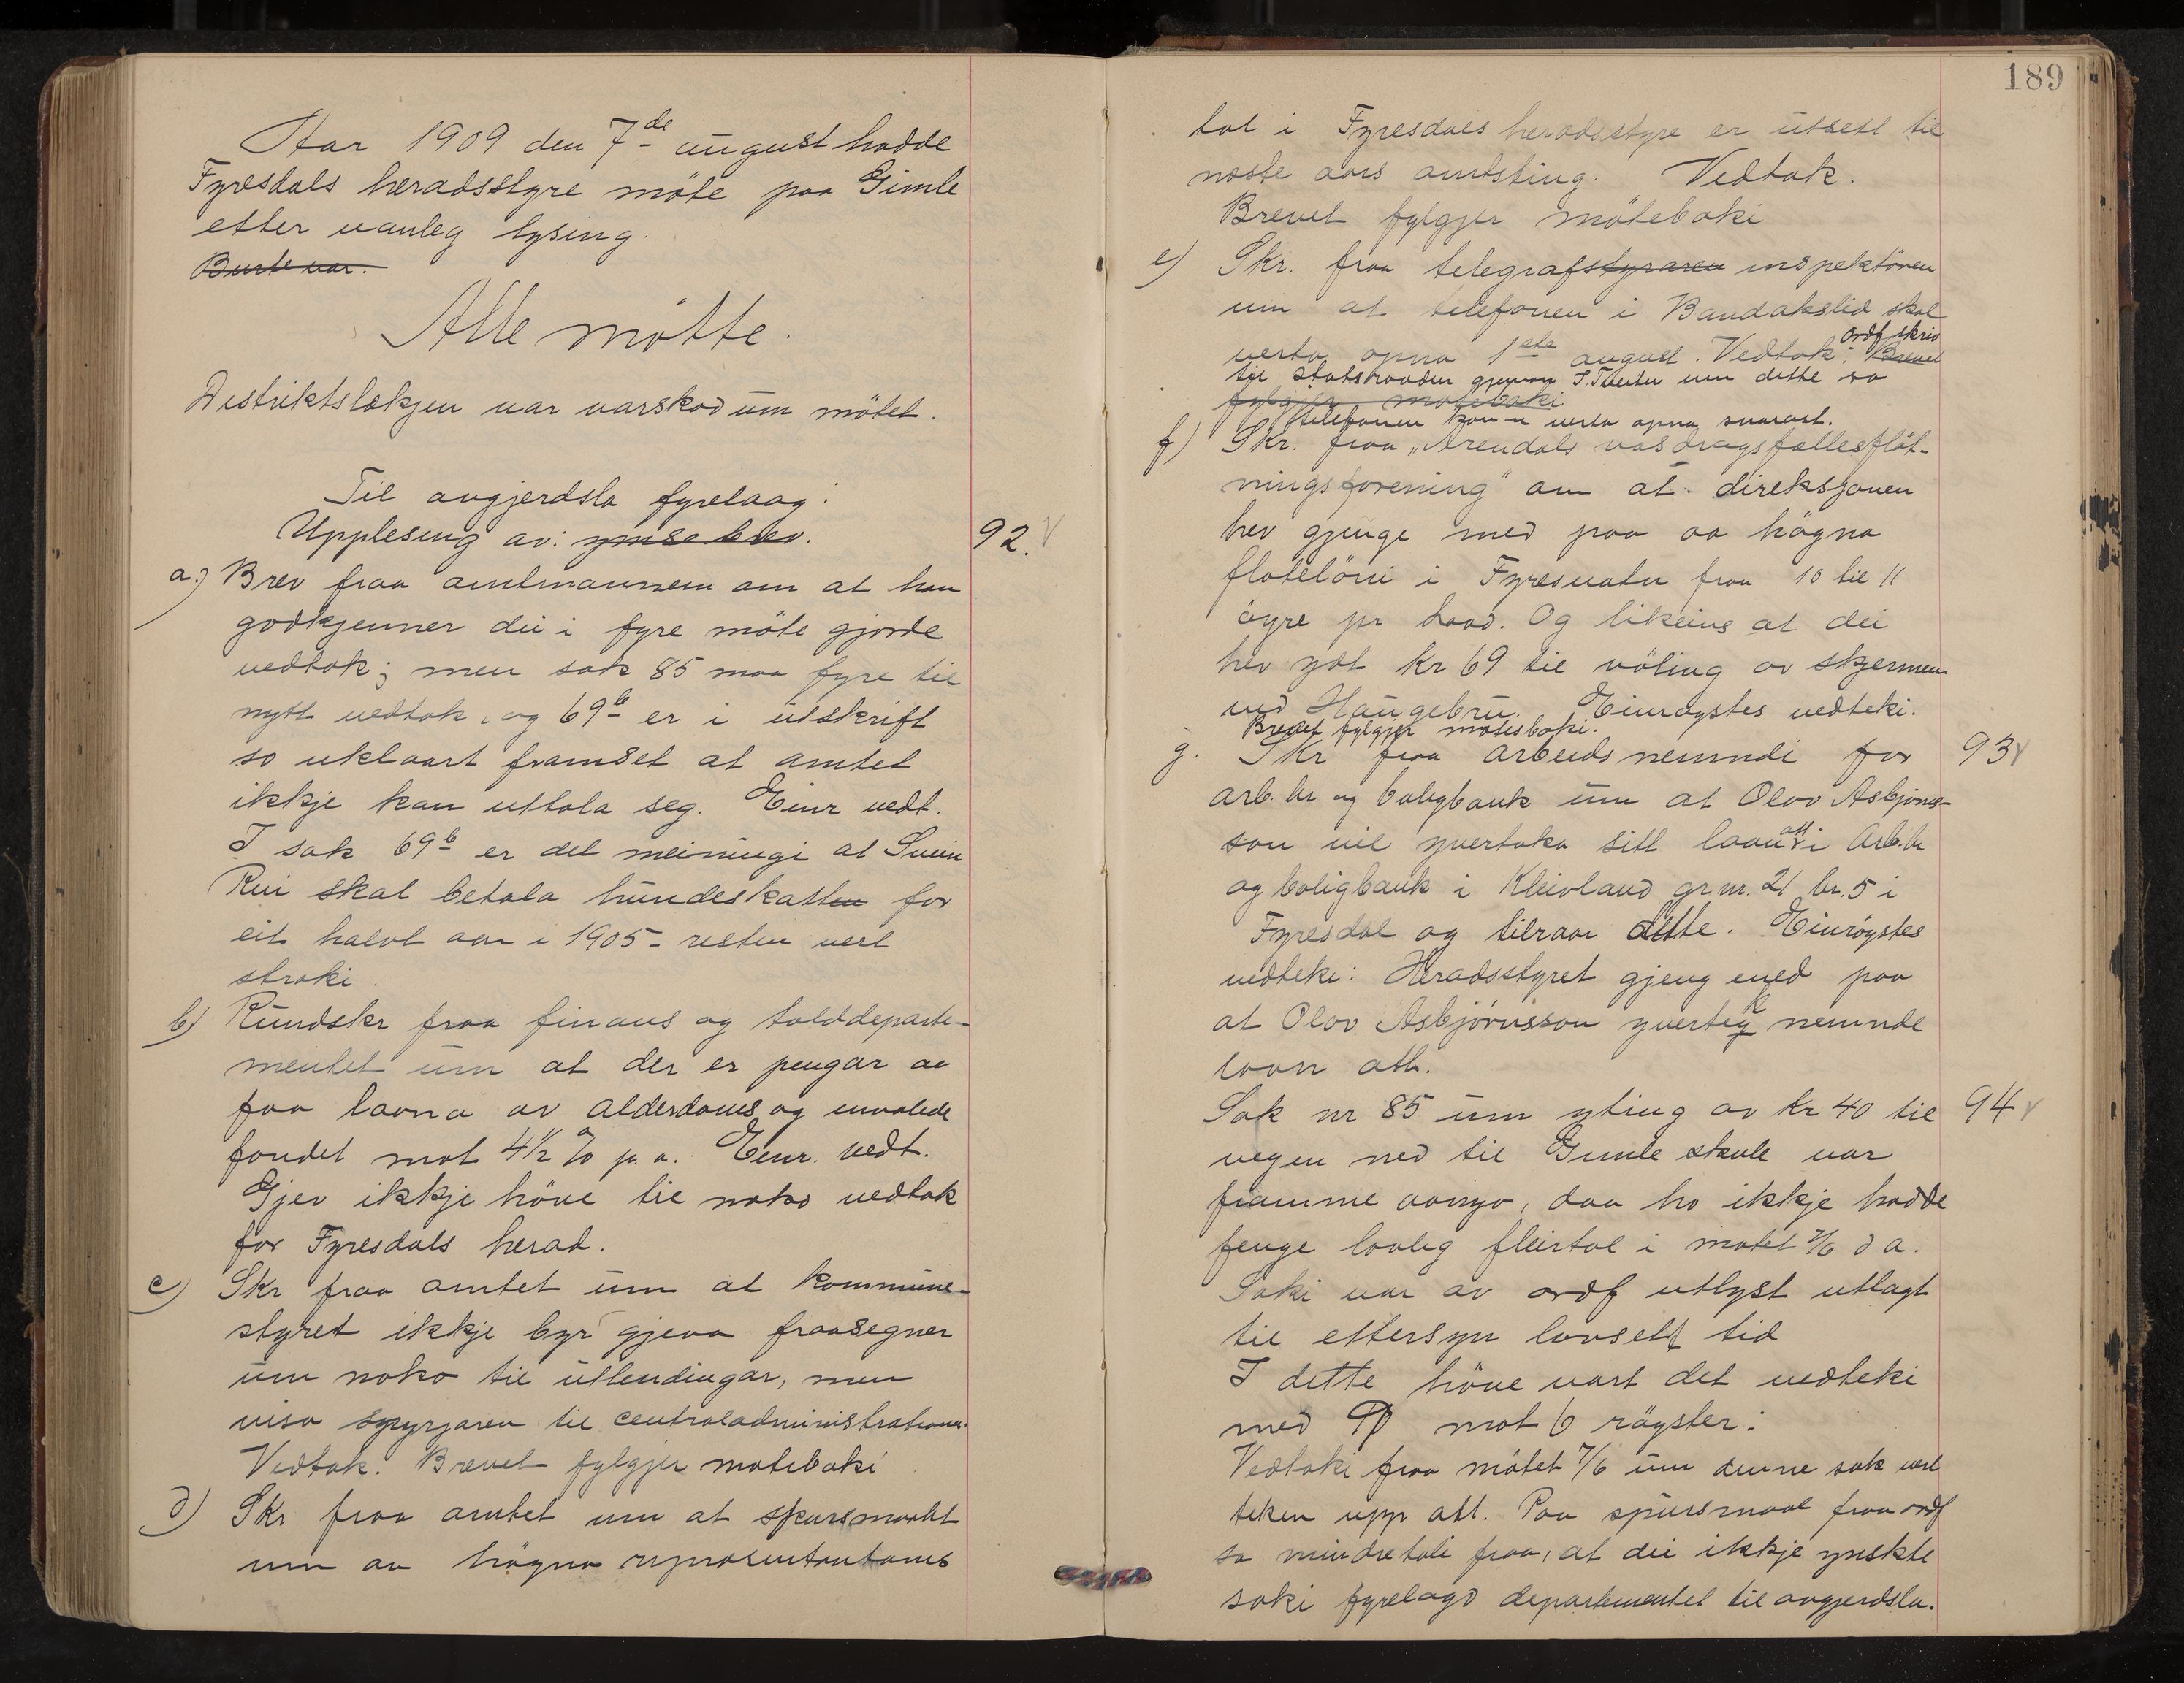 Aar 1909 den 7de august hadde
Fyresdals heradsstyre möte paa Gimle
etter vanleg lysing.
Burte var.
Alle mötte.
Distriktslækjen var varskod um mötet.
Til avgjerdsla fyrelaag:
Upplesing av: ymse brev. 92.
a.) Brev fraa amtmannen om at han
godkjenner dei i fyre möte gjorde
vedtok; men sak 85 maa fyre til
nytt vedtak, og 69b er i utskrift
so uklaart framset at amtet
ikkje kan uttala seg. Einr vedt.
I sak 69b er det meiningi at Svein
Rui skal betala hundeskatten for
eit halvt aar i 1905 - resten vert
stroki.
b) Rundskr fraa finans og tolddeparte-
mentet um at der er pengar aa
faa laana av alderdoms og uvalede
fondet mot 4½ % p. a. Einr. vedt.
Gjev ikkje höve til noko vedtak
for Fyresdals herad.
c) Skr fraa amtet um at kommune-
styret ikkje byr gjeva fraasegner
um noko til utlendingar, men
visa spyrjaren til centraladministrationen.
Vedtak. Brevet fylgjer möteboki
d) Skr fraa amtet um at spursmaalet
um aa högna representantans
189
tal i Fyresdals heradsstyre er utsett til
næste aars amtsting. Vedtak.
Brevet fylgjer möteboki
e) Skr. fraa telegrafstyraren inspektören
um at telefonen i Bandakslid skal
verta opna 1ste august. Vedtak: Brevet ordf skriv
til statsraaden gjenom S. Tveiten um dette so
fylgjer möteboki
telefonen kann verta opna snarast.
f) Skr. fraa "Arendals vasdragsfællesflöt-
ningsforening" om at direksjonen
hev gjenge med paa aa högna
flötelöni i Fyresvatn fraa 10 til 11
öyre pr. Og likeins at dei
hev ydt kr 69 til völing av skjermen
ved Haugebru. Einröystes vedteki.
Brevet fylgjer mötesboki.
g. Skr fraa arbeidsnemndi for 93
arb. br og boligbank um at Olav Asbjörns-
son vil yvertaka sitt laan att i Arb. br
og boligbank i Kleivland gr nr. 21 br. 5 i
Fyresdal og tilraar dette. Einröystes
vedteki: Heradsstyret gjeng med paa
at Olav Asbjörnsson yvertek nemnde
laan att.
Sak nr 85 um yting av kr 40 til 94
vegen ned til Gimle skule var
framme aanyo, daa ho ikkje hadde
fenge lovleg fleirtal i mötet 7/6 d a.
Saki var av ordf utlyst utlagt
til ettersyn lovsett tid
I dette höve vart det vedteki
med mot 6 röyster:
Vedtaki fraa mötet 7/6 um denne sak vert
teken upp att. Paa spursmaal fraa ordf
sa mindretali fraa, at dei ikkje ynskte
saki fyrelagd departementet til avgjerdsla.